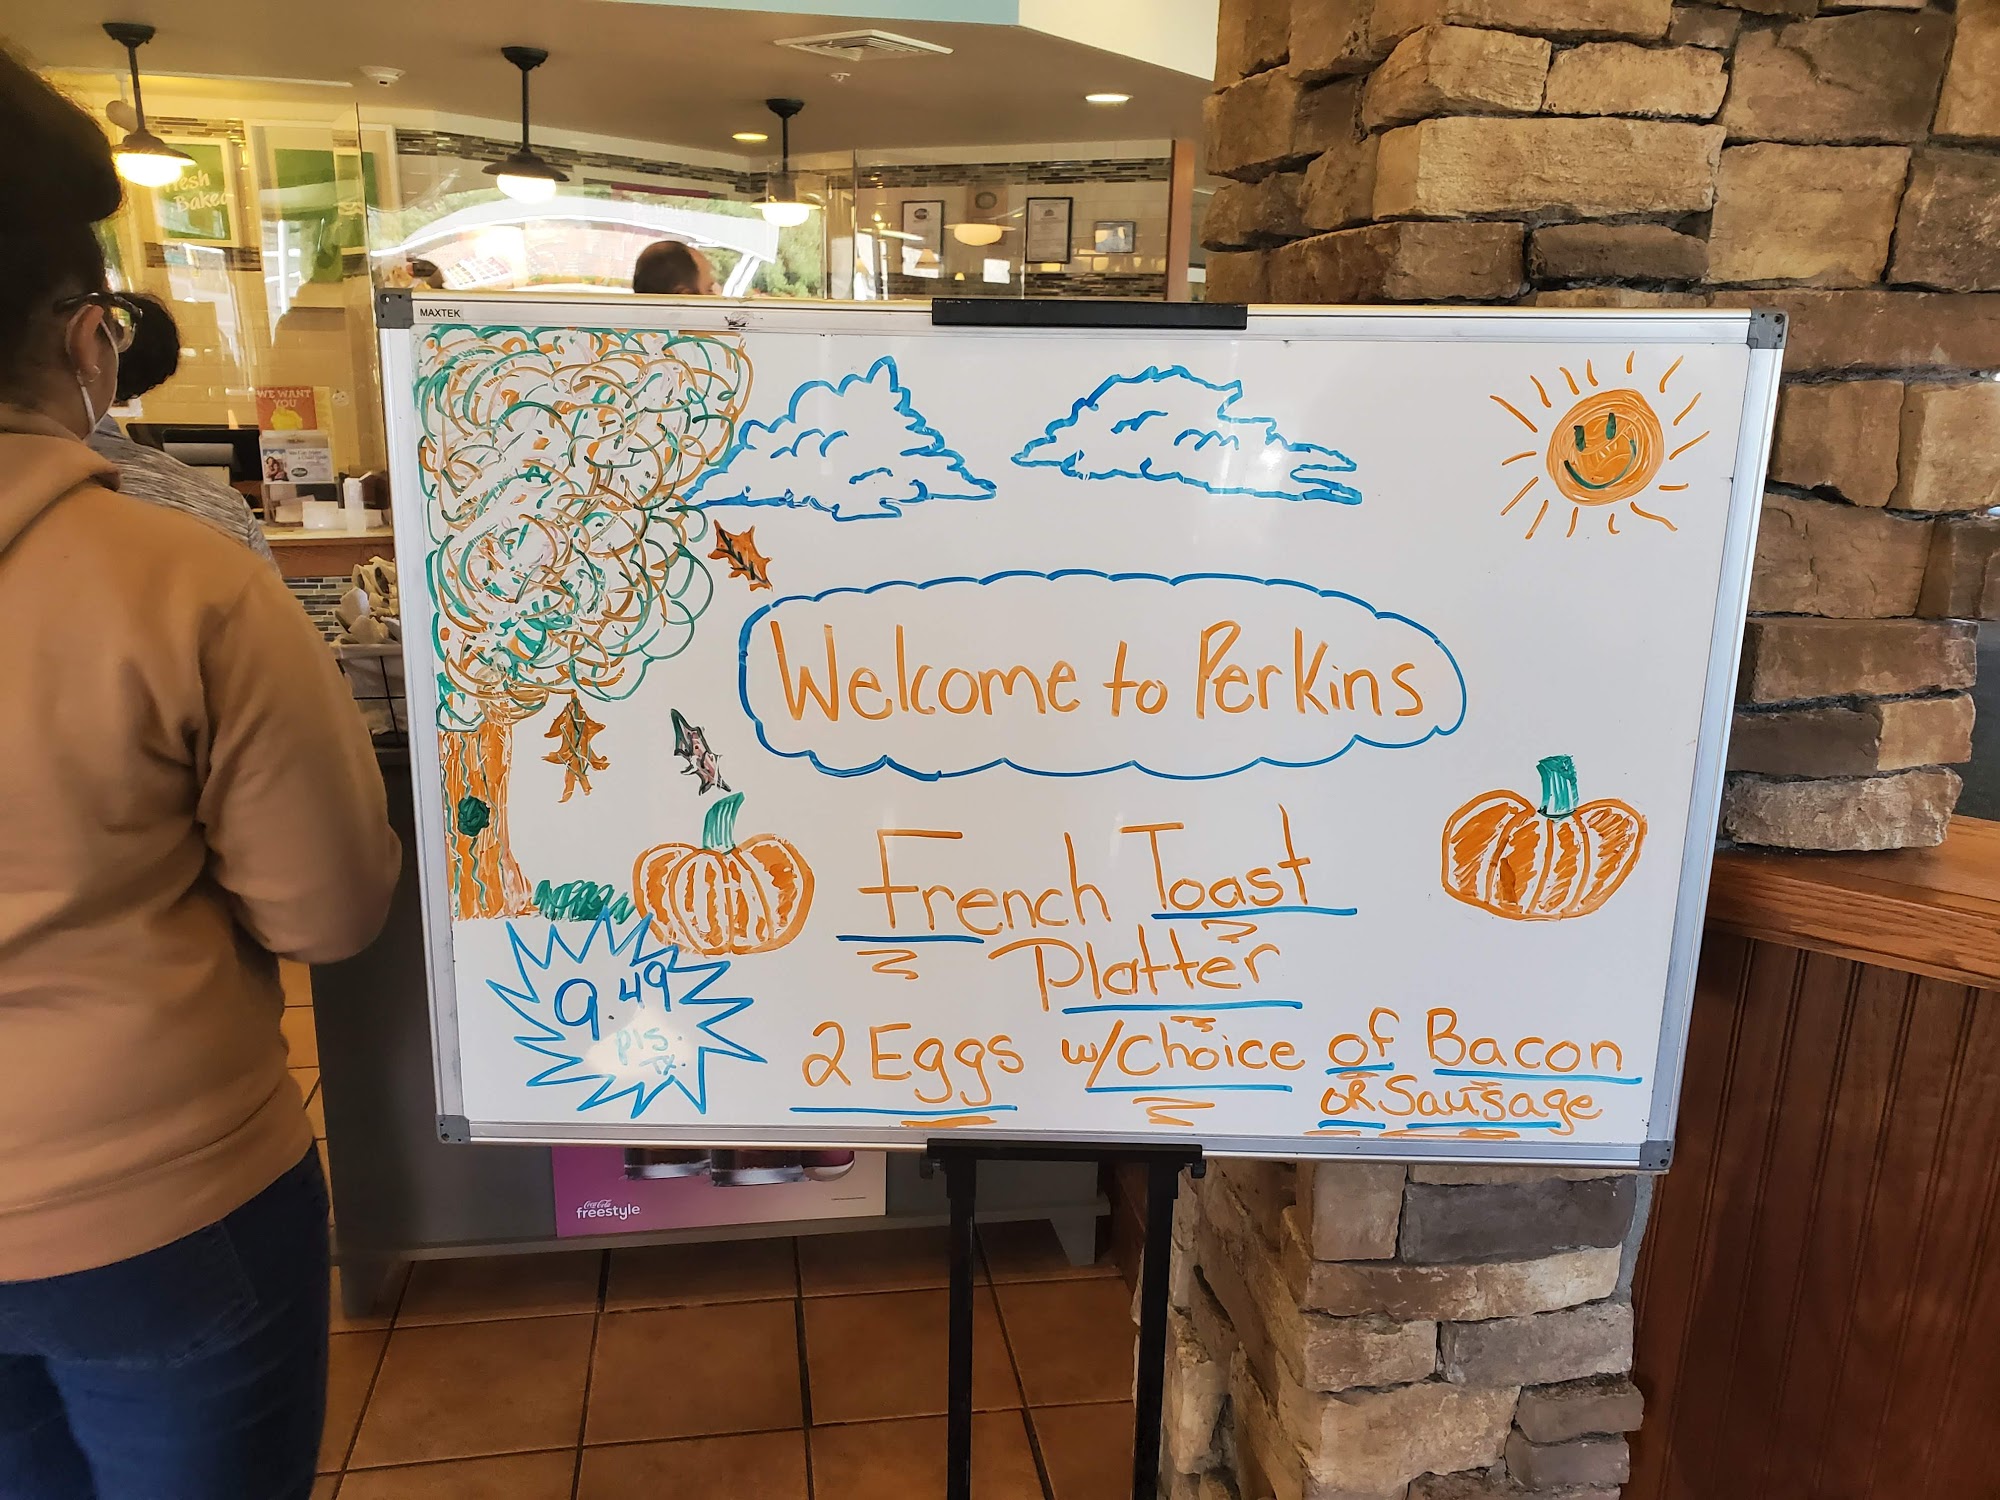 fresh
Baked
WE WANT
YOU
MAXTEK
Welcome to Perkins
French Toast
Platter
9.49
pls.
Tx.
2 Eggs w/Choice of Bacon
OR Sausage
Coca-Cola
freestyle